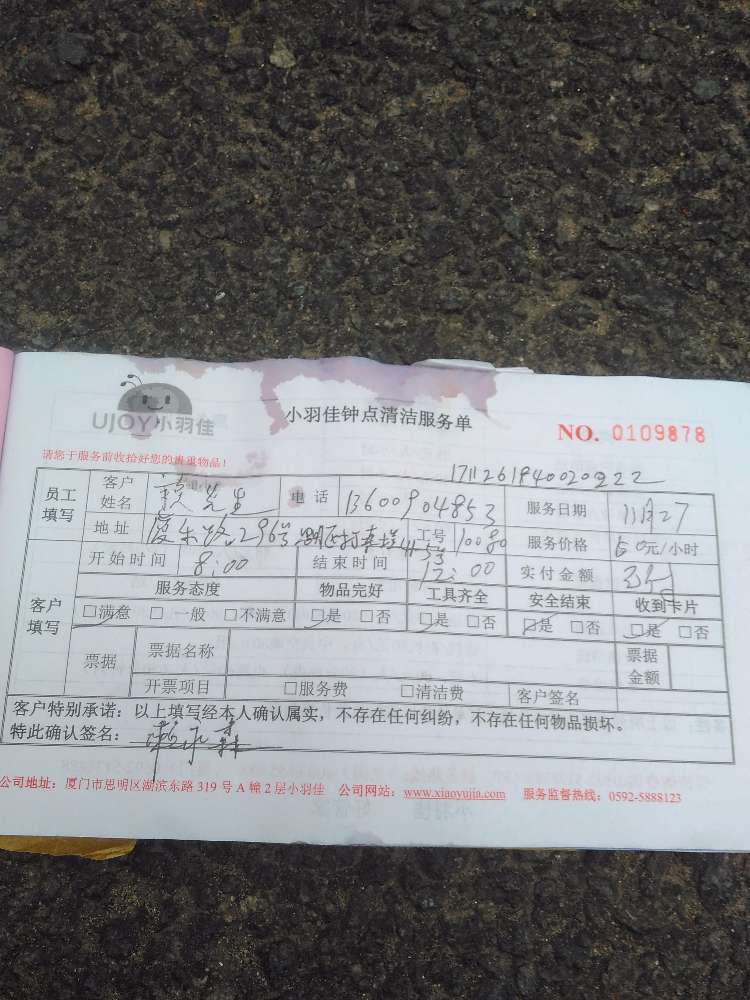 UJOY小羽佳
小羽佳钟点清洁服务单
NO. 0109878
请您于服务前收拾好您的贵重物品！
员工填写 客户姓名 赖先生 电话 13600904853 服务日期 11月27
地址 296号 工号 10080 服务价格 50元/小时
客户填写 开始时间 8:00 结束时间 12:00 实付金额
服务态度 物品完好 工具齐全 安全结束 收到卡片
□满意 □一般 □不满意 □是 □否 □是 □否 □是 □否 □是 □否
票据 票据名称 票据金额
开票项目 □服务费 □清洁费 客户签名
客户特别承诺：以上填写经本人确认属实，不存在任何纠纷，不存在任何物品损坏。
特此确认签名：
公司地址：厦门市思明区湖滨东路 319 号 A 幢 2 层小羽佳 公司网站：www.xiaoyujia.com 服务监督热线：0592-5888123